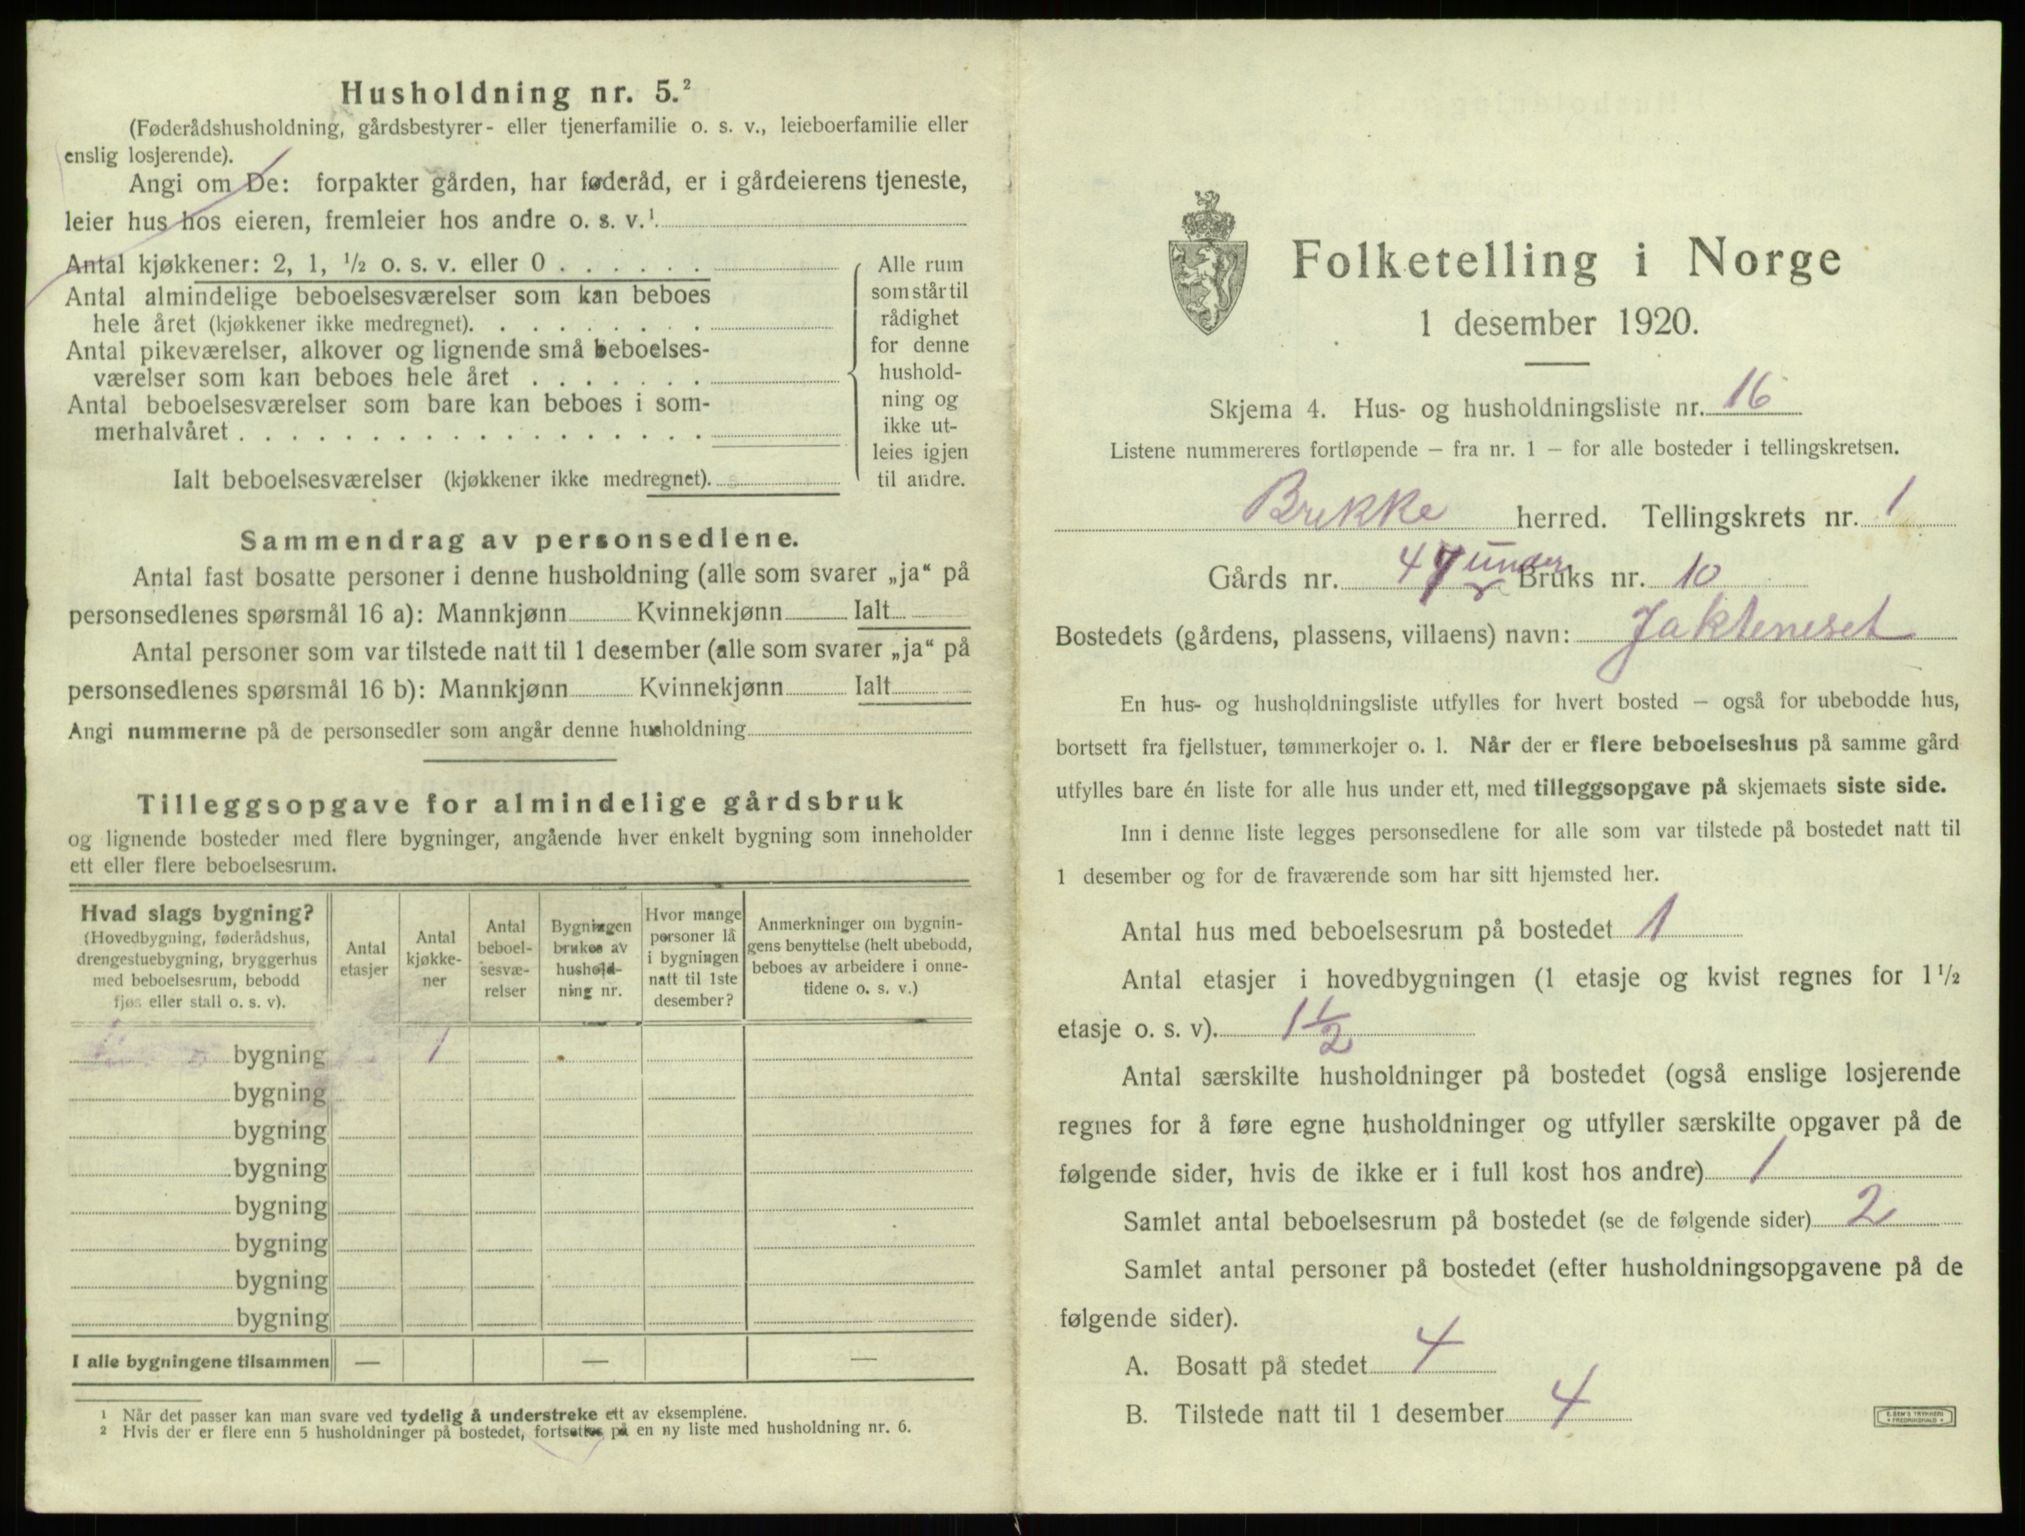 Husholdning nr. 5.²
(Føderådshusholdning, gårdsbestyrer- eller tjenerfamilie o. s. v., leieboerfamilie eller
enslig losjerende).
Angi om De: forpakter gården, har føderåd, er i gårdeierens tjeneste,
leier hus hos eieren, fremleier hos andre o. s. v.¹
Antal kjøkkener: 2, 1, ½ o. s. v. eller 0 . . . . . .
Antal almindelige beboelsesværelser som kan beboes
hele året (kjøkkener ikke medregnet). . . . . . . . .
Antal pikeværelser, alkover og lignende små beboelses-
værelser som kan beboes hele året . . . . . . .
Antal beboelsesværelser som bare kan beboes i som-
merhalvåret . . . . . . . . . . . . . . . . . .
Ialt beboelsesværelser (kjøkkener ikke medregnet).
Alle rum
som står til
rådighet
for denne
hushold-
ning og
ikke ut-
leies igjen
til andre.
Sammendrag av personsedlene.
Antal fast bosatte personer i denne husholdning (alle som svarer „ja“ på
personsedlenes spørsmål 16 a): Mannkjønn Kvinnekjønn Ialt
Antal personer som var tilstede natt til 1 desember (alle som svarer „ja“ på
personsedlenes spørsmål 16 b): Mannkjønn Kvinnekjønn Ialt
Angi nummerne på de personsedler som angår denne husholdning
Tilleggsopgave for almindelige gårdsbruk
og lignende bosteder med flere bygninger, angående hver enkelt bygning som inneholder
ett eller flere beboelsesrum.
Hvad slags bygning?
(Hovedbygning, føderådshus,
drengestuebygning, bryggerhus
med beboelsesrum, bebodd
fjøs eller stall o. s. v).
Antal
etasjer
Antal
kjøkke-
ner
Antal
beboel-
sesvæ-
relser
Bygningen
brukes av
hushold-
ning nr.
Hvor mange
personer lå
i bygningen
natt til 1ste
desember?
Anmerkninger om bygnin-
gens benyttelse (helt ubebodd,
beboes av arbeidere i onne-
tidene o. s. v.)
bygning 1
bygning
bygning
bygning
bygning
bygning
bygning
bygning
I alle bygningene tilsammen — — —
¹ Når det passer kan man svare ved tydelig å understreke ett av eksemplene.
² Hvis der er flere enn 5 husholdninger på bostedet, fortsettes på en ny liste med husholdning nr. 6.
Folketelling i Norge
1 desember 1920.
Skjema 4. Hus- og husholdningsliste nr. 16
Listene nummereres fortløpende – fra nr. 1 – for alle bosteder i tellingskretsen.
Brekke herred. Tellingskrets nr. 1
Gårds nr. 47 under Bruks nr. 10
Bostedets (gårdens, plassens, villaens) navn: Jakteneset
En hus- og husholdningsliste utfylles for hvert bosted – også for ubebodde hus,
bortsett fra fjellstuer, tømmerkojer o. l. Når der er flere beboelseshus på samme gård
utfylles bare én liste for alle hus under ett, med tilleggsopgave på skjemaets siste side.
Inn i denne liste legges personsedlene for alle som var tilstede på bostedet natt til
1 desember og for de fraværende som har sitt hjemsted her.
Antal hus med beboelsesrum på bostedet 1
Antal etasjer i hovedbygningen (1 etasje og kvist regnes for 1½
etasje o. s. v). 1½
Antal særskilte husholdninger på bostedet (også enslige losjerende
regnes for å føre egne husholdninger og utfyller særskilte opgaver på de
følgende sider, hvis de ikke er i full kost hos andre) 1
Samlet antal beboelsesrum på bostedet (se de følgende sider) 2
Samlet antal personer på bostedet (efter husholdningsopgavene på de
følgende sider).
A. Bosatt på stedet 4
B. Tilstede natt til 1 desember 4
E. SEM'S TRYKKERI
FREDRIKSHALD